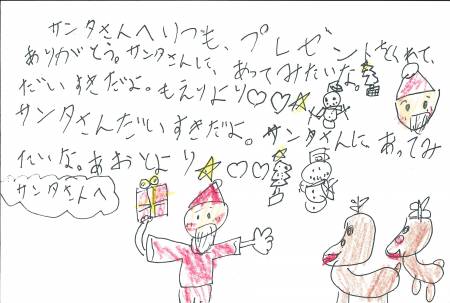 サンタさんへいつも、プレゼントをくれて、
ありがとう。サンタさんに、あってみたいな。
だいすきだよ。もえりより♡♡
サンタさんだいすきだよ。サンタさんに、あってみ
たいな。あおとより♡♡
サンタさんへ